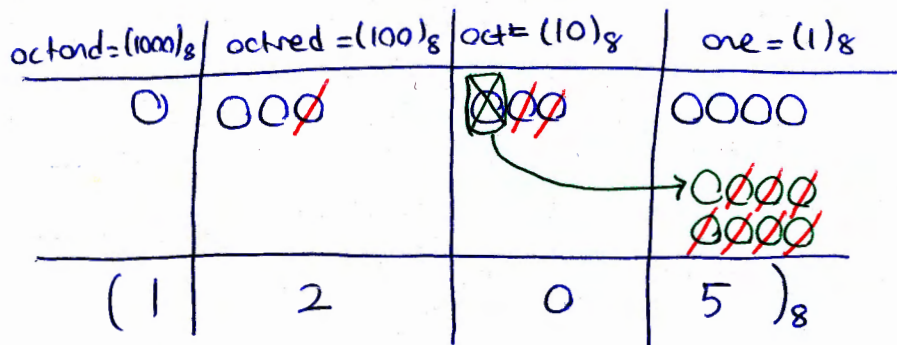 octond=(1000)₈ octred=(100)₈ oct=(10)₈ one=(1)₈
(1 2 0 5)₈